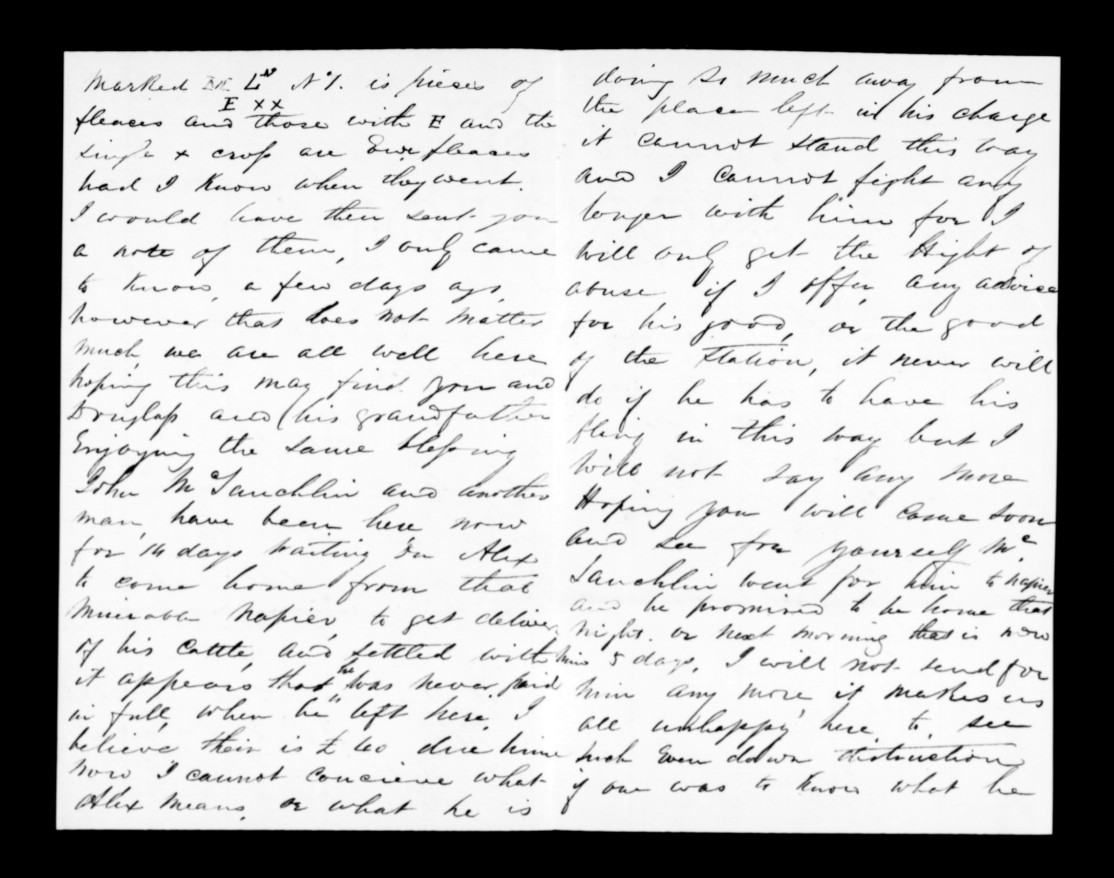 Marked L N No 1. is pieces of
E xx
fleaces and those with E and the
single x cross are Ewe fleaces
had I Know when they went.
I would have then sent you
a note of them, I only came
to Know, a few days ago,
however that does not matter
much, we are all well here
hoping this may find you and
Douglass and his grandfather
Enjoying the same blessing
John McLauchlin and another
man, have been here now
for 14 days waiting on Alex
to come home from that
Miserable Napier, to get deliver
of his Cattle, and settled with
it appears that he was never paid
in full, when he left here, I
believe their is £ 40 due him
now I cannot concieve what
Alex means, or what he is
doing so much away from
the place left in his charge
it cannot stand this way
and I cannot fight any
longer with him for I
will only get the Hight of
abuse if I offer, any advice
for his good, or the good
of the Station, it never will
do if he has to have his
fling in this way but I
will not say any more
Hoping you will come soon
and see for yourself Mc
Lauchlin went for him to Napier
and he promised to be home that
night. or next morning that is now
him 5 days, I will not send for
him any more, it makes us
all unhappy here, to, see
such Even down distruction
if one was to Know what he